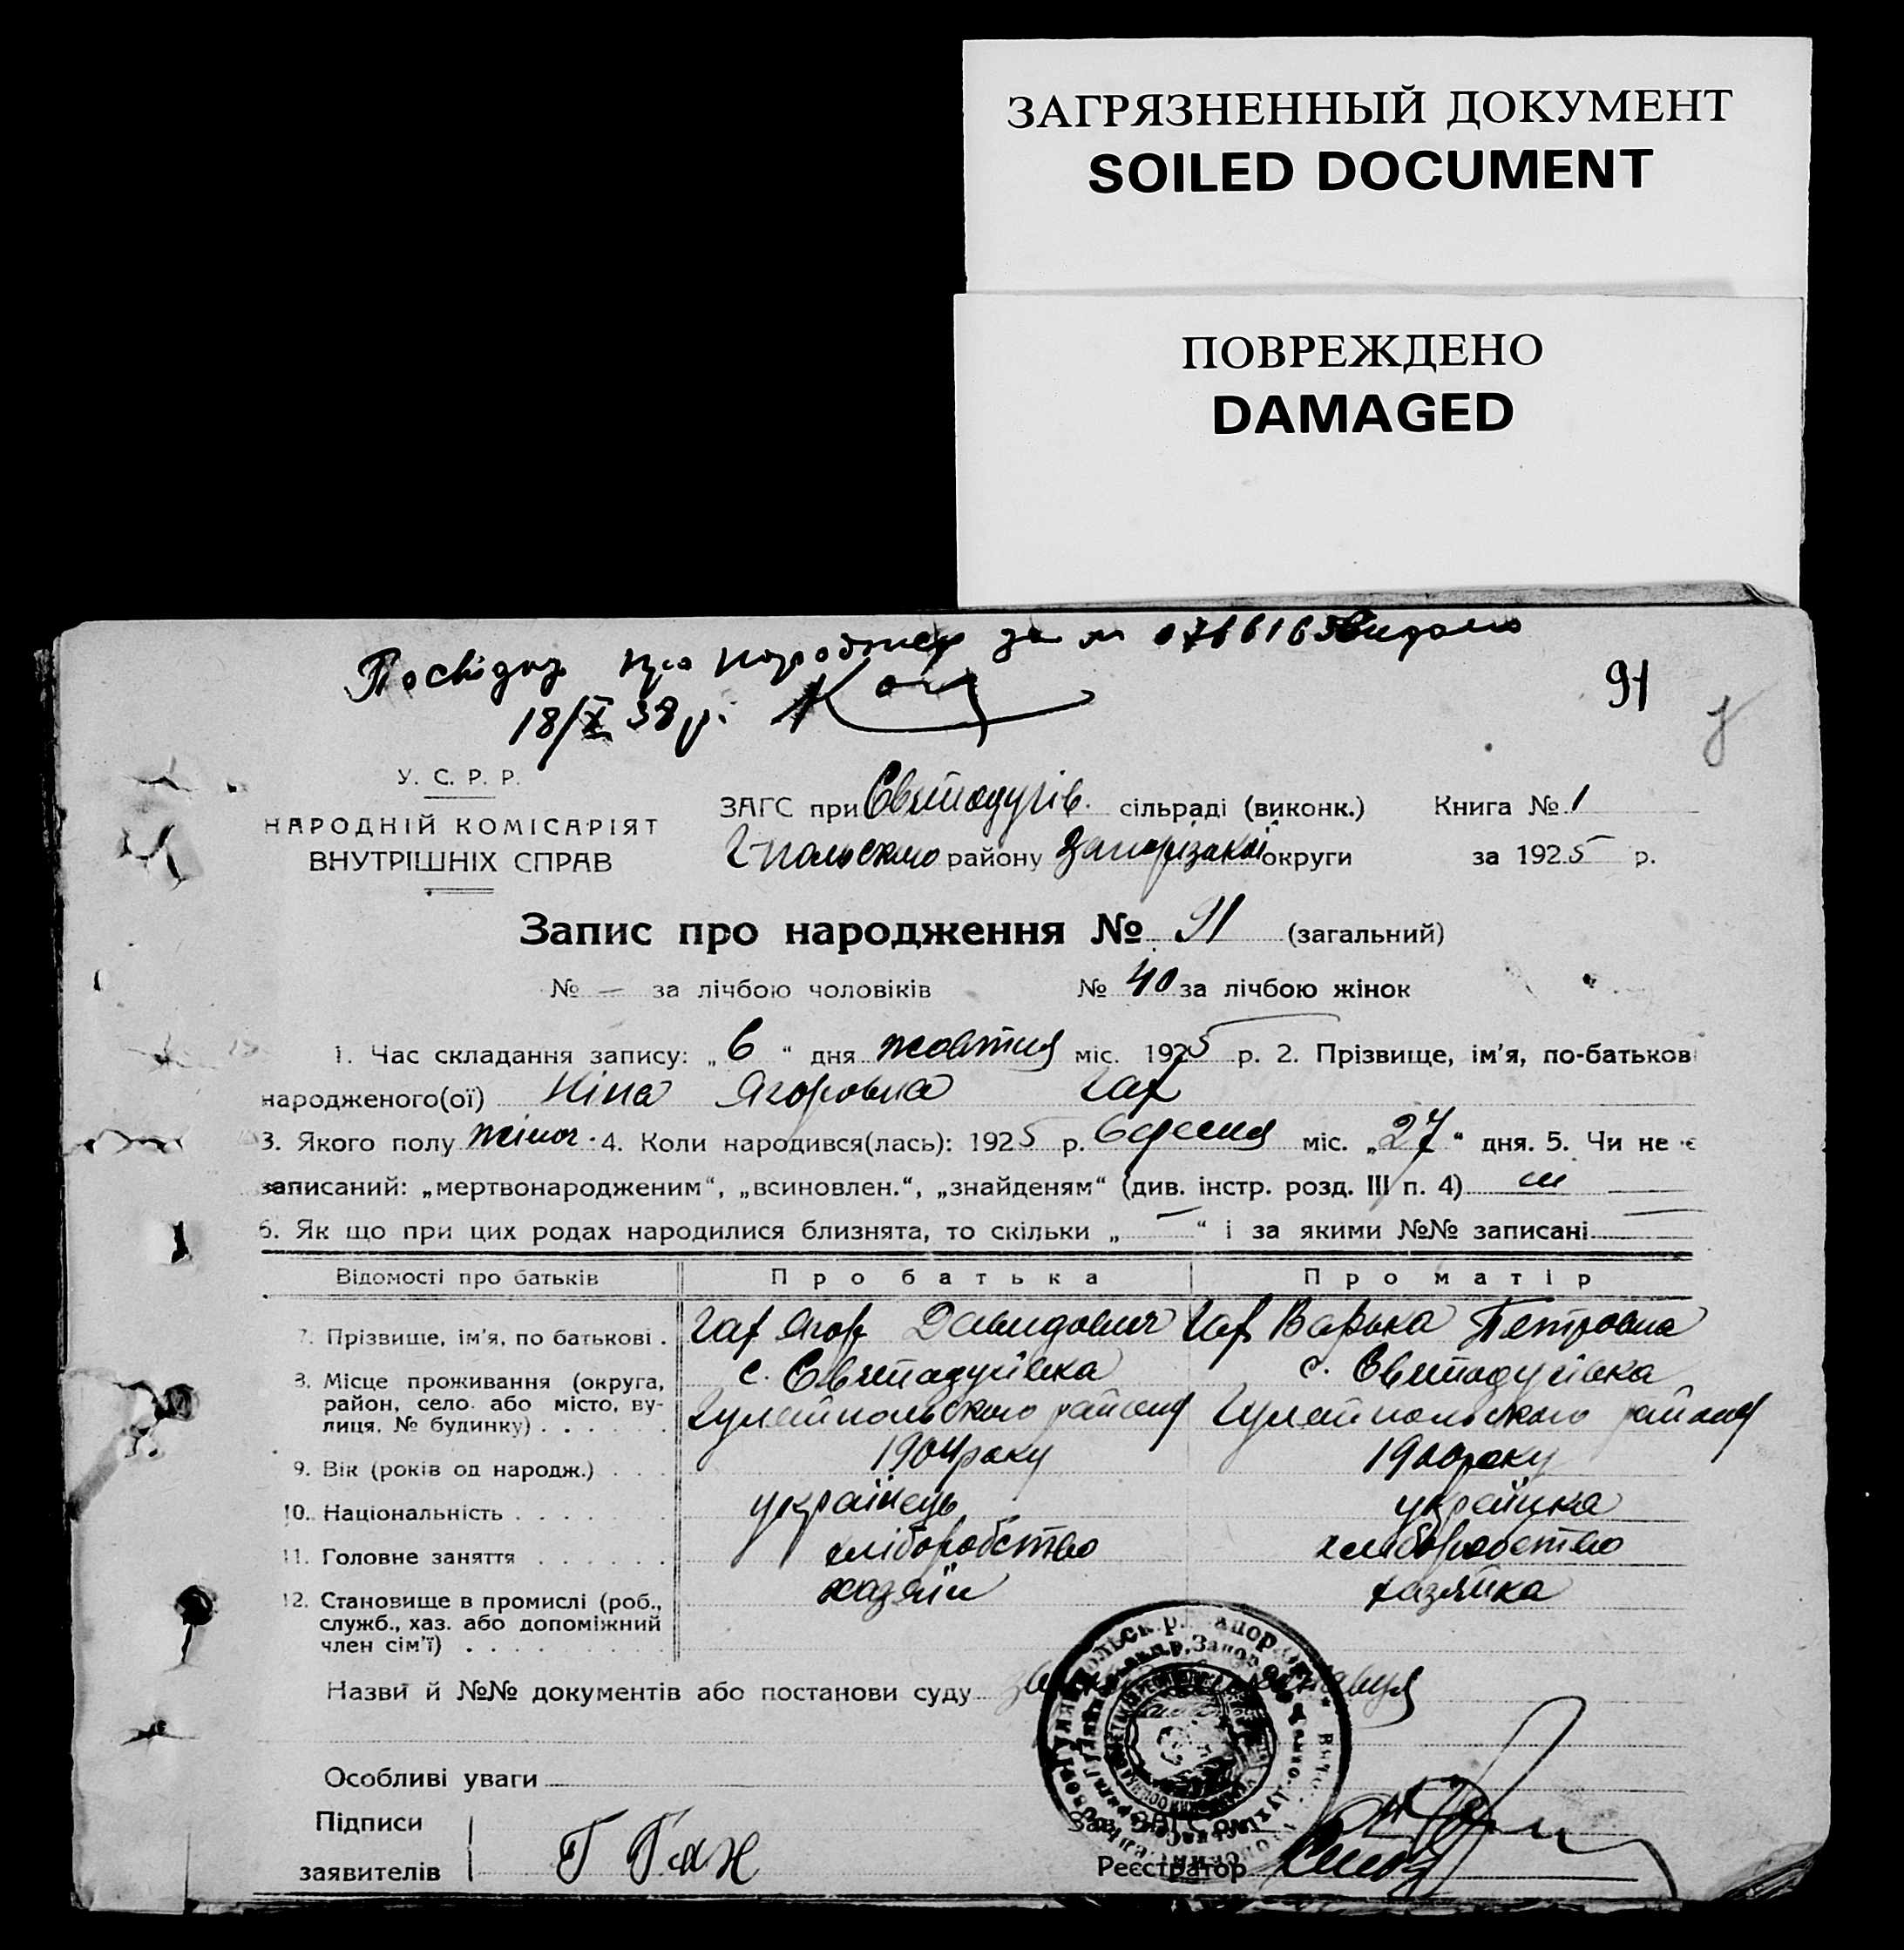 ЗАГРЯЗНЕННЫЙ ДОКУМЕНТ
SOILED DOCUMENT
ПОВРЕЖДЕНО
DAMAGED
про за № видано
18/X 38 р.
91
У. С. Р. Р.
НАРОДНІЙ КОМІСАРІЯТ
ВНУТРІШНІХ СПРАВ
ЗАГС при Святодухів. сільраді (виконк.) Книга № 1
Г-польского району Запорізької округи за 1925 р.
Запис про народження № 91 (загальний)
№ — за лічбою чоловіків № 40 за лічбою жінок
1. Час складання запису: „ 6 “ дня жовтня міс. 1925 р. 2. Прізвище, ім'я, по-батькові
народженого(ої) Ніна Ягоровна Гах
3. Якого полу жіноч. 4. Коли народився(лась): 1925 р. Вересня міс. „27“ дня. 5. Чи не є
записаний: „мертвонародженим“, „всиновлен.“, „знайденям“ (див. інстр. розд. III п. 4) ні
6. Як що при цих родах народилися близнята, то скільки „ — “ і за якими №№ записані —
Відомості про батьків Про батька Про матір
7. Прізвище, ім'я, по батькові . Гах Ягор Давидович Гах Варька Петровна
8. Місце проживання (округа, с. Святодухівка с. Святодухівка
район, село або місто, ву-
лиця, № будинку) . . . . . . Гуляйпольского района Гуляйпольского района
9. Вік (років од народж.) . . . 1904 року 1900 року
10. Національність . . . . . . . українець українка
11. Головне заняття . . . . . . хліборобство хліборобство
12. Становище в промислі (роб., хазяїн хазяйка
служб., хаз. або допоміжний
член сім'ї) . . . . . . . . .
Назви й №№ документів або постанови суду
Особливі уваги
Підписи
заявителів Г Гах
Зав. ЗАГС'ом
Реєстратор